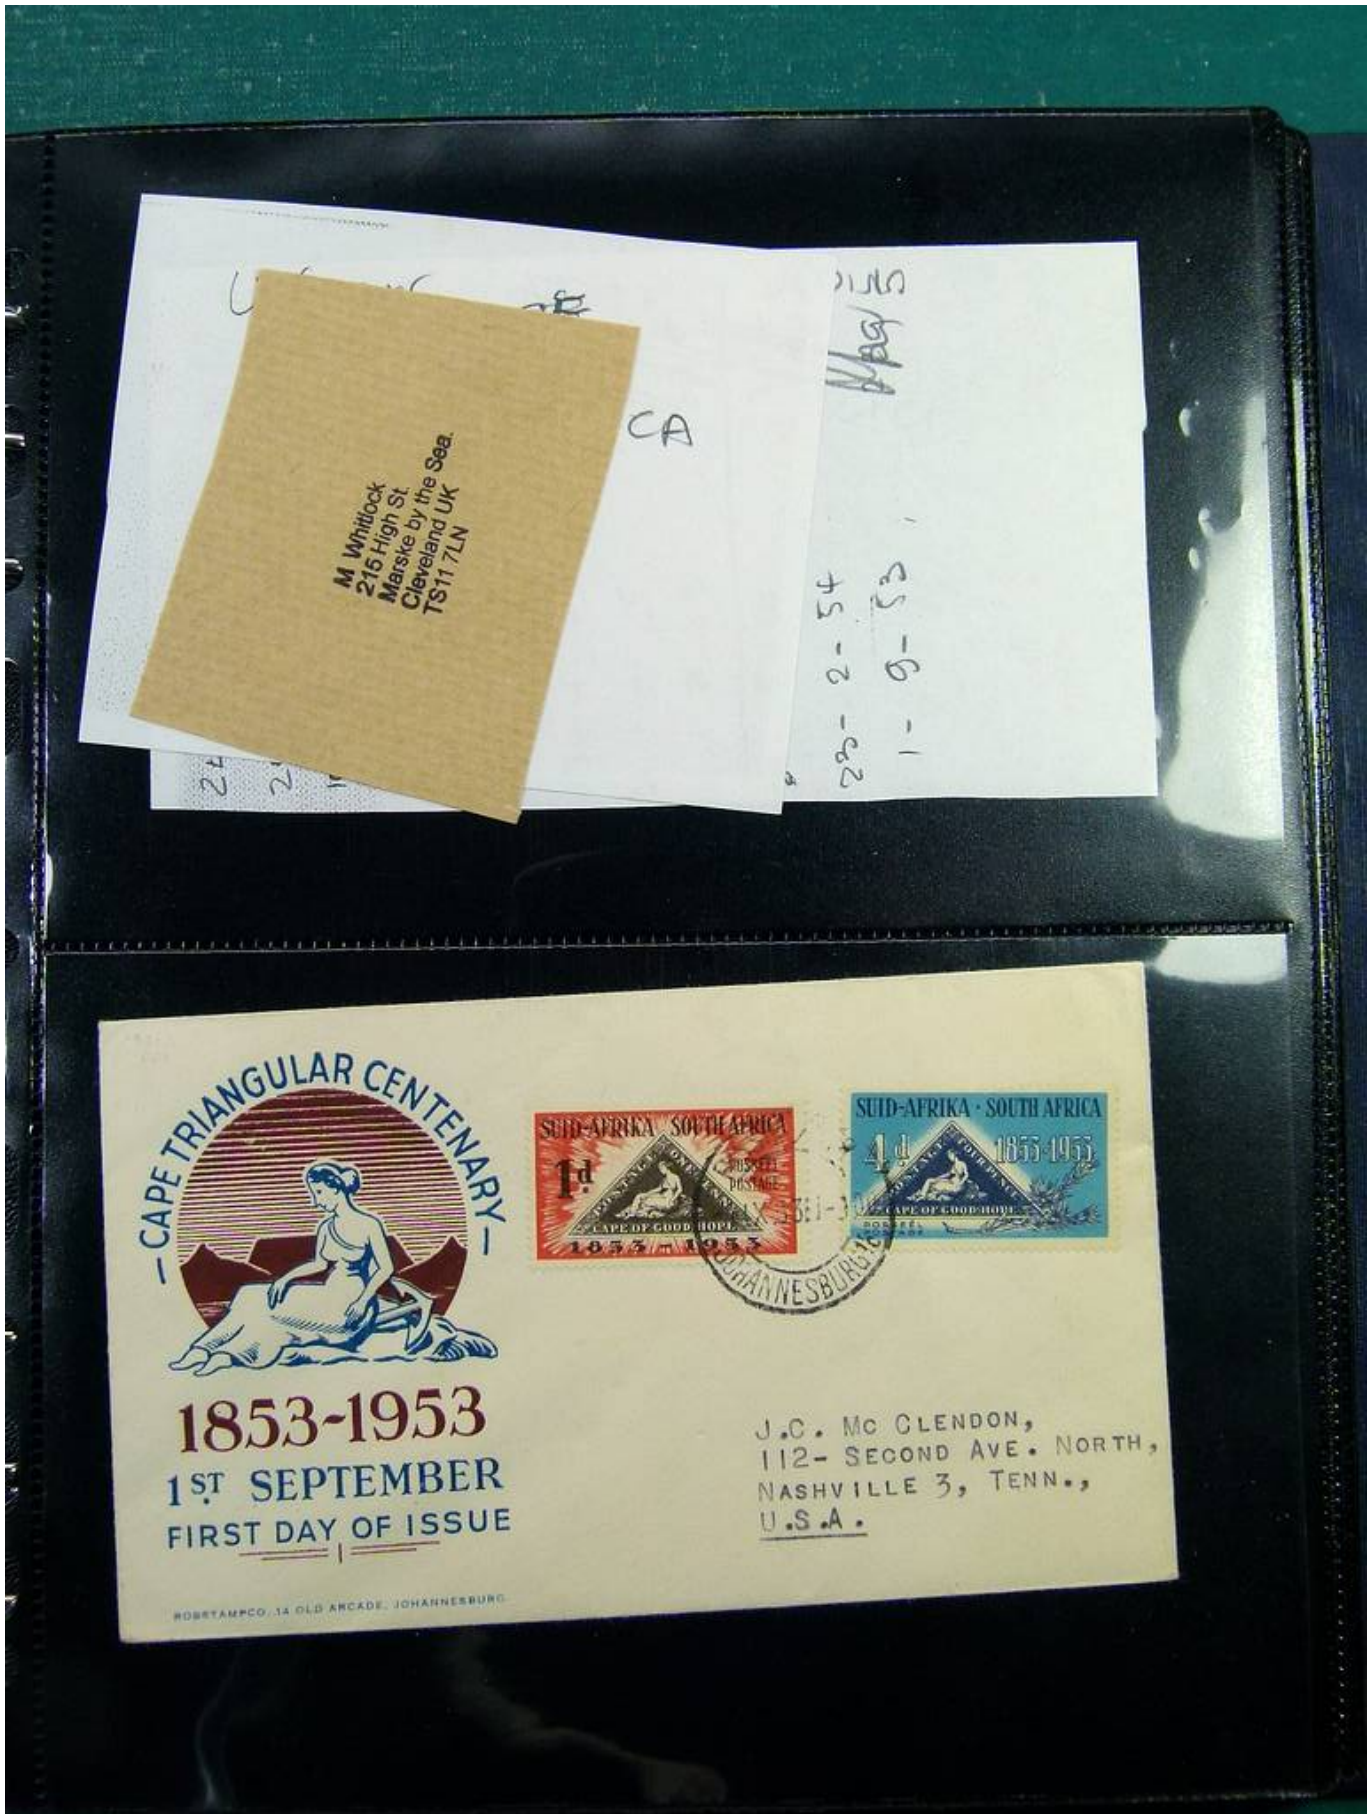 CA
M Whitlock
215 High St.
Marske by the Sea.
Cleveland UK
TS11 7LN
23-2-54
1-9-53
-CAPE TRIANGULAR CENTENARY-
1853-1953
1ST SEPTEMBER
FIRST DAY OF ISSUE
ROBSTAMPCO. 14 OLD ARCADE, JOHANNESBURG
SUID-AFRIKA SOUTH AFRICA
1d
POSSEEL
POSTAGE
POSTAGE ONE PENNY
CAPE OF GOOD HOPE
1853-1953
JOHANNESBURG
SUID-AFRIKA · SOUTH AFRICA
4d 1853-1953
POSTAGE FOUR PENCE
CAPE OF GOOD HOPE
POSSEEL
POSTAGE
J.C. MC CLENDON,
112- SECOND AVE. NORTH,
NASHVILLE 3, TENN.,
U.S.A.